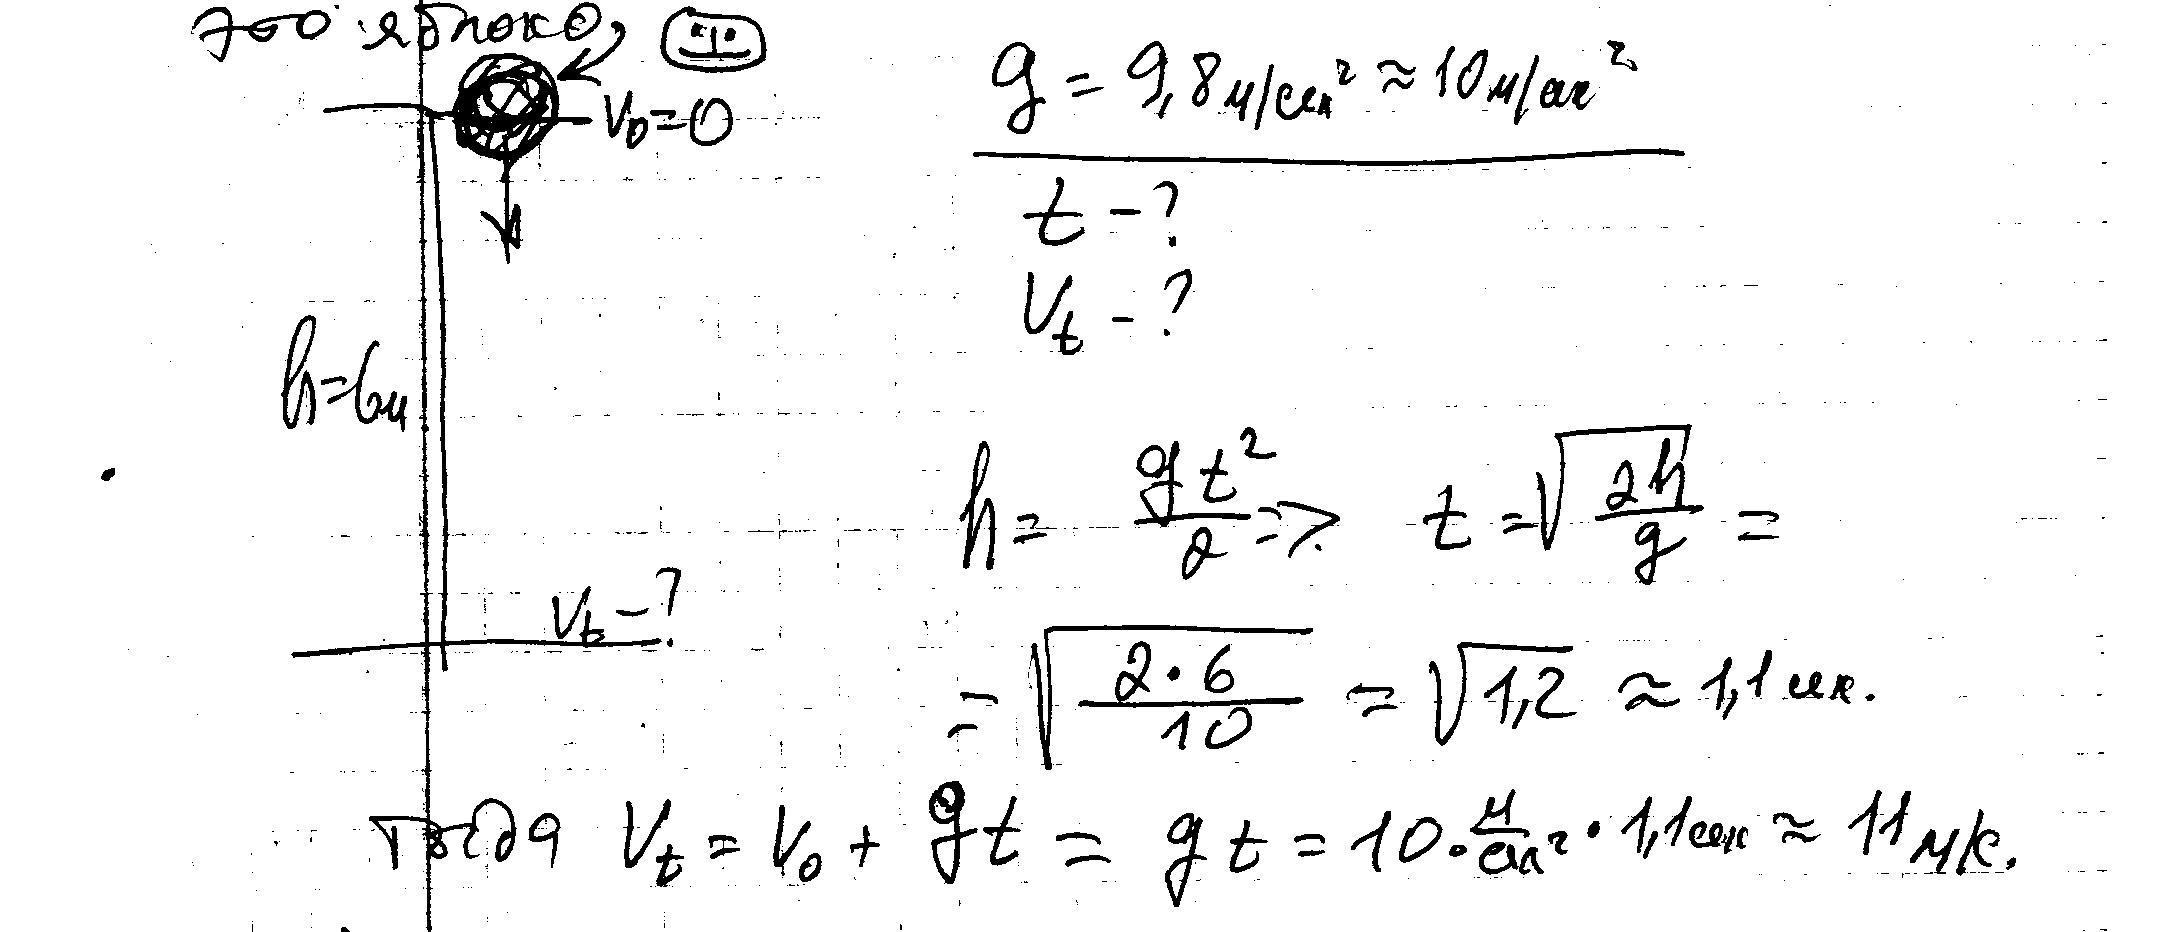 это яблоко
V₀=0
g = 9,8 м/сек² ≈ 10 м/сек²
t - ?
Vₜ - ?
h=6м
h = gt²/2 => t = √(2h/g) =
Vₜ - ?
= √(2·6/10) = √1,2 ≈ 1,1 сек.
тогда Vₜ = V₀ + gt = gt = 10·м/сек² · 1,1 сек ≈ 11 м/с.